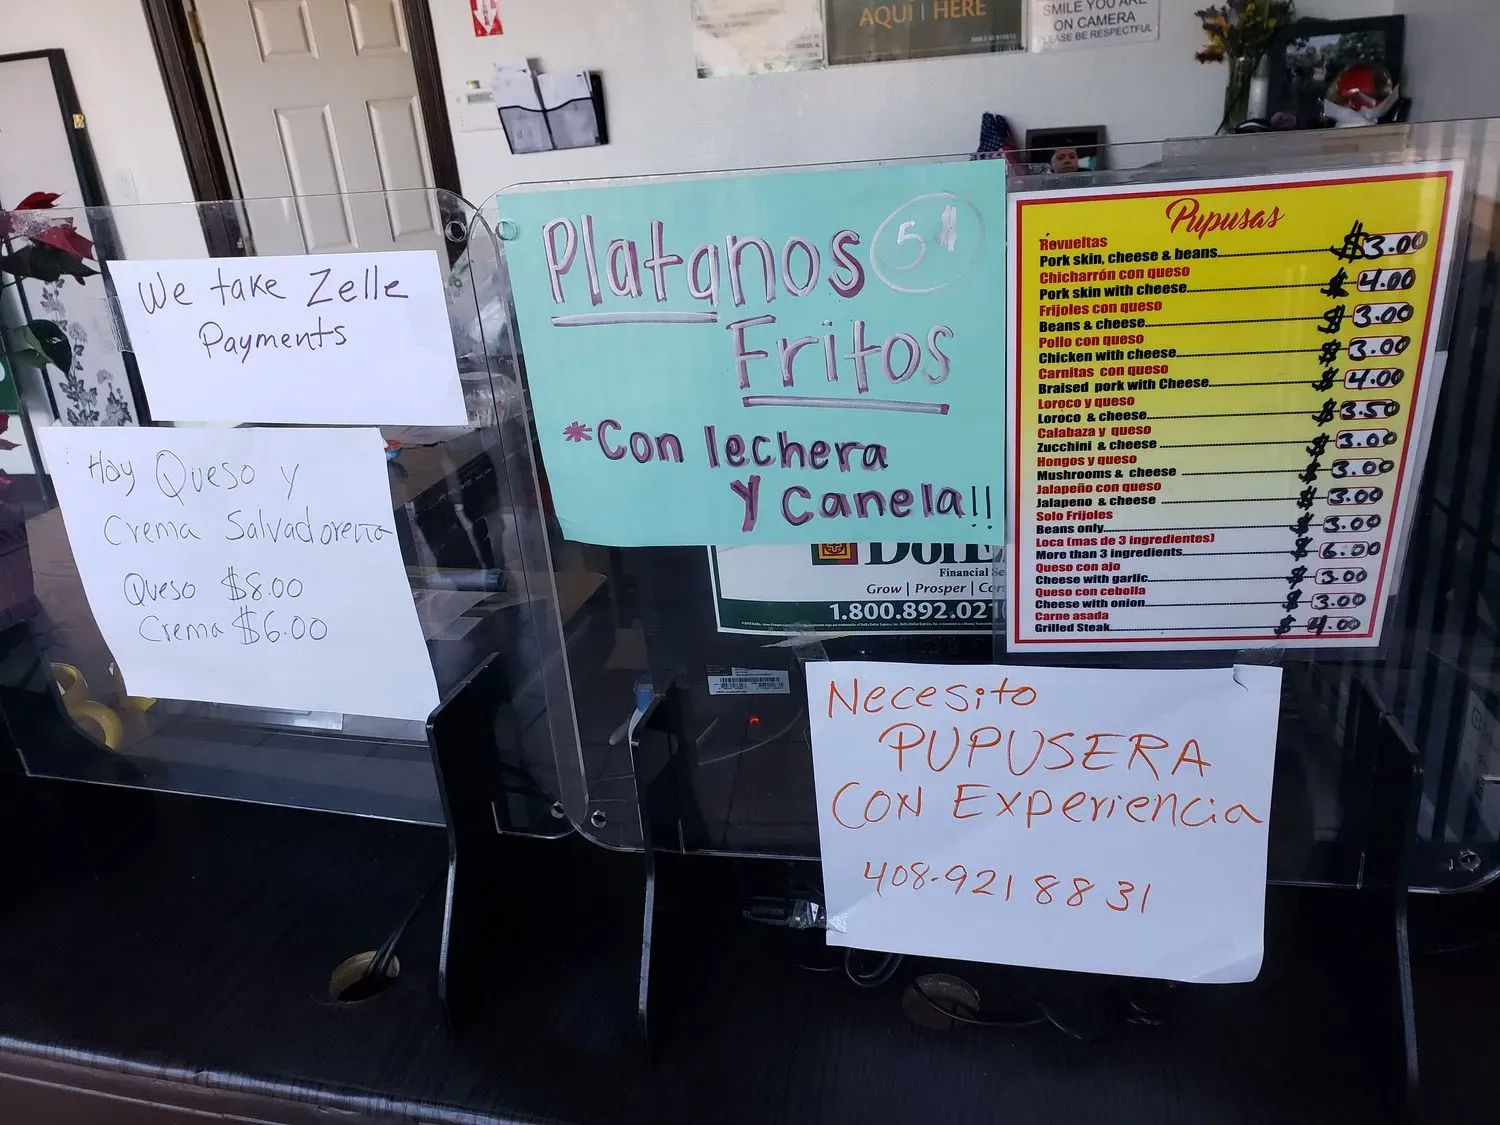 AQUI | HERE
SMILE YOU ARE
ON CAMERA
PLEASE BE RESPECTFUL
We take Zelle
Payments
Hay Queso y
Crema Salvadorena
Queso $8.00
Crema $6.00
Platanos 5$
Fritos
*Con lechera
y Canela!!
Financial
Grow | Prosper |
1.800.892.021
Pupusas
Revueltas
Pork skin, cheese & beans $3.00
Chicharrón con queso
Pork skin with cheese $4.00
Frijoles con queso
Beans & cheese $3.00
Pollo con queso
Chicken with cheese $3.00
Carnitas con queso
Braised pork with Cheese $4.00
Loroco y queso
Loroco & cheese $3.50
Calabaza y queso
Zucchini & cheese $3.00
Hongos y queso
Mushrooms & cheese $3.00
Jalapeño con queso
Jalapeno & cheese $3.00
Solo Frijoles
Beans only $3.00
Loca (mas de 3 ingredientes)
More than 3 ingredients $6.00
Queso con ajo
Cheese with garlic $3.00
Queso con cebolla
Cheese with onion $3.00
Carne asada
Grilled Steak $4.00
Necesito
PUPUSERA
CON Experiencia
408-921 8831